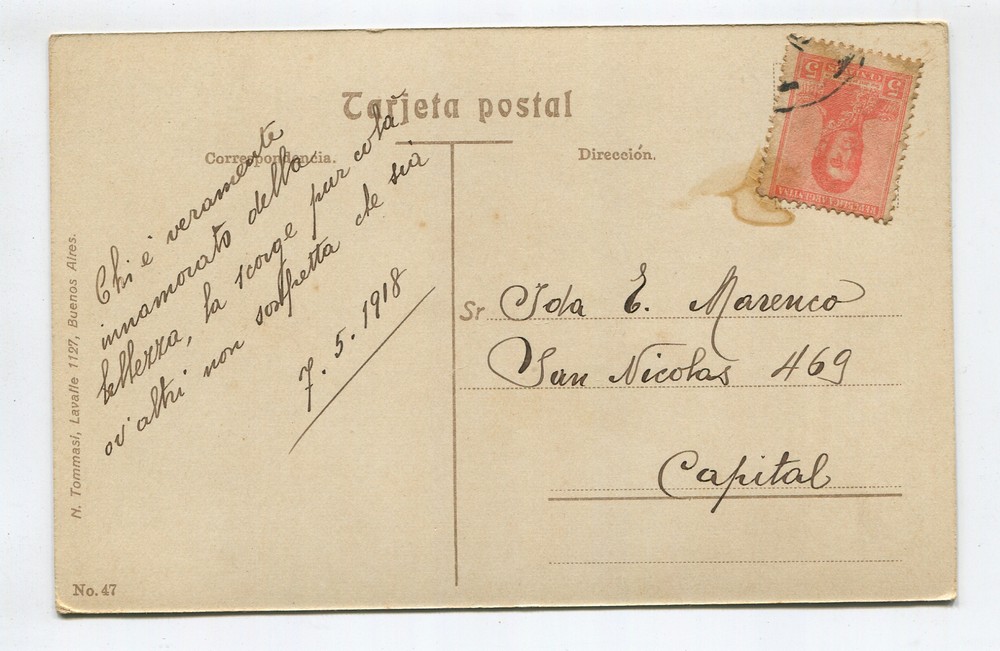 Tarjeta postal
Correspondencia.
Dirección.
Chi è veramente
innamorato della
bellezza, la scorge pur colà
ov'altri non sospetta che sia
7. 5. 1918
Sr Ida E. Marenco
San Nicolas 469
Capital
N. Tommasi, Lavalle 1127, Buenos Aires.
No. 47
REPUBLICA ARGENTINA
5 CENTAVOS 5